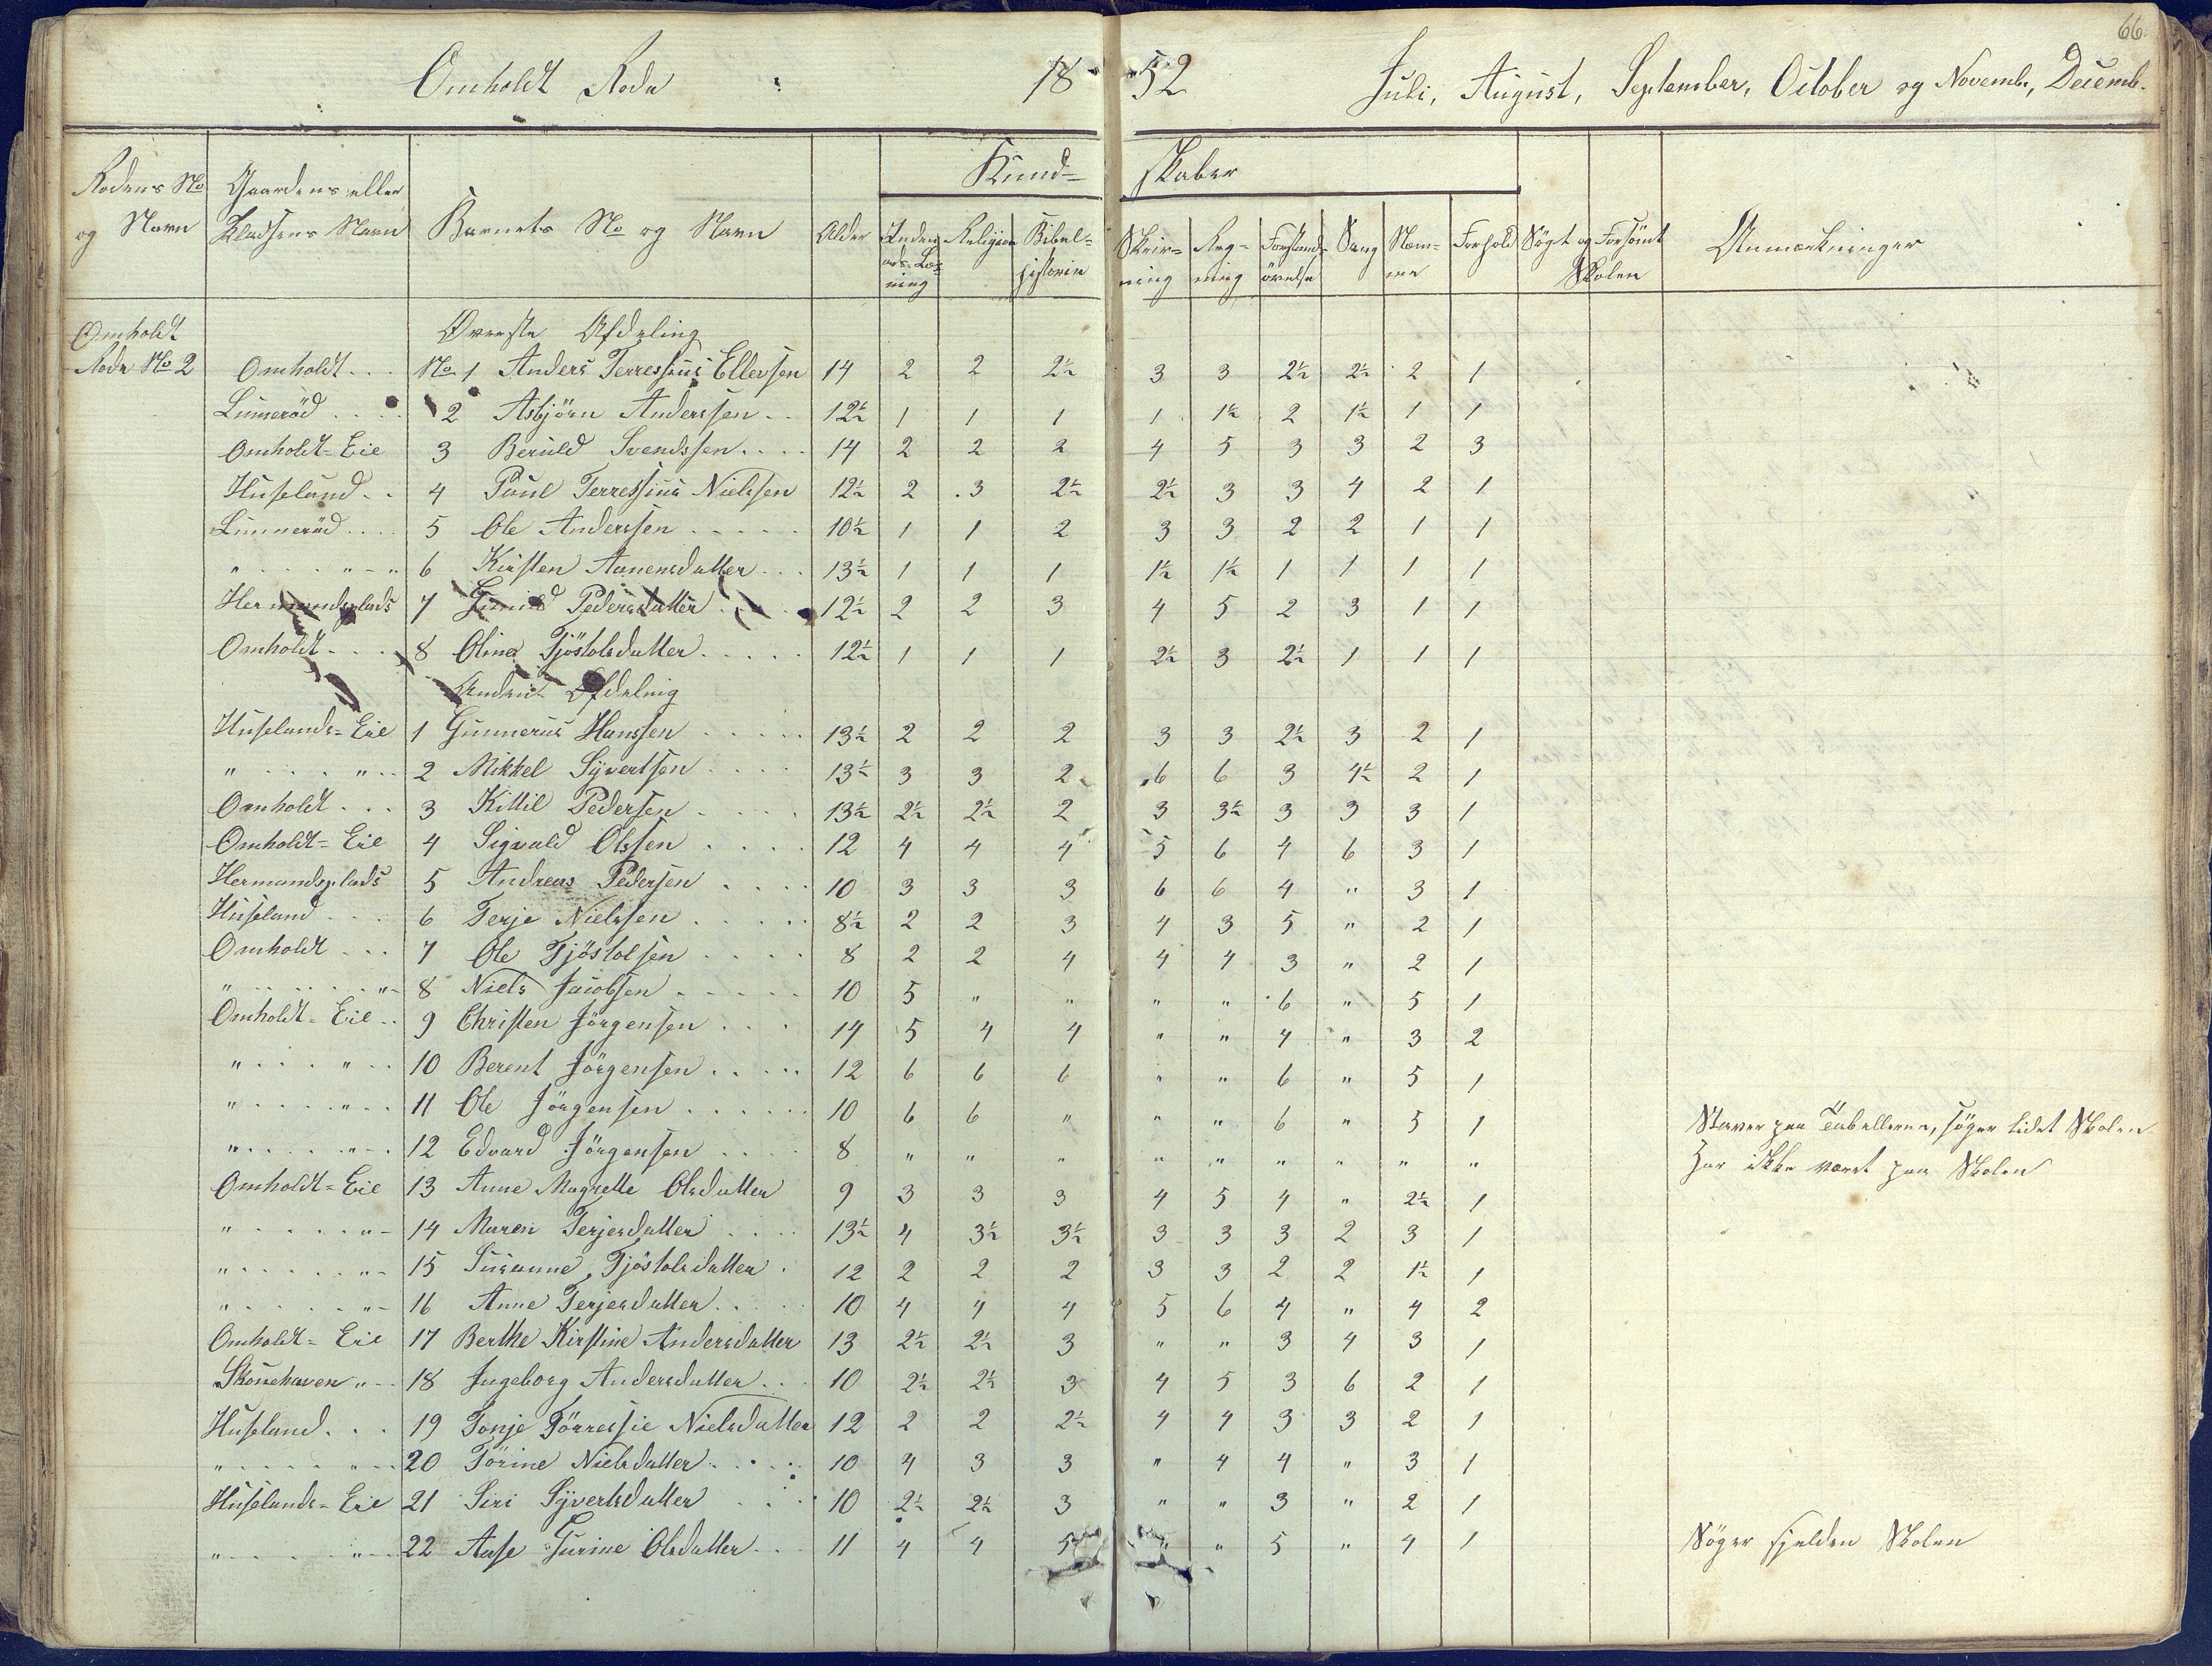 66.
Omholdt Rode 1852 Juli, August, September, October og Novembr, Decemb.
Kundskaber
Rodens No og Navn Gaardens eller Pladsens Navn Barnets No og Navn Alder Inden ads-Læsning Religion Bibelhistorie Skrivning Regning Forstandsøvelse Sang Nemme Forhold Søgt og Forsömt Skolen Anmærkninger
Omholdt Øverste Afdeling
Rode No 2 Omholdt No 1 Anders Terressius Ellevsen 14 2 2 2½ 3 3 2½ 2½ 2 1
Linnerød 2 Asbjörn Anderssen 12½ 1 1 1 1 1½ 2 1½ 1 1
Omholdt-Eie 3 Beruld Svendssen 14 2 2 2 4 5 3 3 2 3
Huseland 4 Poul Terressius Nielssen 12½ 2 3 2½ 2½ 3 3 4 2 1
Linnerød 5 Ole Anderssen 10½ 1 1 2 3 3 2 2 1 1
" " 6 Kirsten Aanensdatter 13½ 1 1 1 1½ 1½ 1 1 1 1
Hermandsplads 7 Gunild Pedersdatter 12½ 2 2 3 4 5 2 3 1 1
Omholdt 8 Oline Tjöstolsdatter 12½ 1 1 1 2½ 3 2½ 1 1 1
Anden Afdeling
Huselands-Eie 1 Gunnerius Hanssen 13½ 2 2 2 3 3 2½ 3 2 1
" " 2 Mikkel Syvertsen 13½ 3 3 2 6 6 3 4½ 2 1
Omholdt 3 Kittil Pedersen 13½ 2½ 2½ 2 3 3½ 3 3 3 1
Omholdt-Eie 4 Sigvald Olssen 12 4 4 4 5 6 4 6 3 1
Hermandsplads 5 Andreas Pedersen 10 3 3 3 6 6 4 " 3 1
Huseland 6 Terje Nielssen 8½ 2 2 3 4 3 5 " 2 1
Omholdt 7 Ole Tjöstolsen 8 2 2 4 4 4 3 " 2 1
" " 8 Niels Jacobsen 10 5 " " " " 6 " 5 1
Omholdt-Eie 9 Christen Jörgensen 14 5 4 4 " " 4 " 3 2
" " 10 Berent Jörgensen 12 6 6 6 " " 6 " 5 1
" " 11 Ole Jörgensen 10 6 6 " " " 6 " 5 1 Staver paa Tabellerne, söger lidet Skolen
" " 12 Edvard Jörgensen 8 " " " " " " " " " Har ikke været paa Skolen
Omholdt-Eie 13 Anne Magrette Olsdatter 9 3 3 3 4 5 4 " 2½ 1
" " 14 Maren Terjesdatter 13½ 4 3½ 3½ 3 3 3 2 3 1
" " 15 Susanne Tjöstolsdatter 12 2 2 2 3 3 2 2 1½ 1
" " 16 Anne Terjesdatter 10 4 4 4 5 6 4 " 4 2
Omholdt-Eie 17 Berthe Kirstine Andersdatter 13 2½ 2½ 3 " " 3 4 3 1
Skouehaven " 18 Ingeborg Andersdatter 10 2½ 2½ 3 4 5 3 6 2 1
Huseland 19 Tonje Törressie Nielsdatter 12 2 2 2½ 4 4 3 3 2 1
" " 20 Törine Nielsdatter 10 4 3 3 " 4 4 " 3 1
Huselands-Eie 21 Siri Syvertsdatter 10 2½ 2½ 3 " " 3 " 2 1
" " 22 Aase Gurine Olsdatter 11 4 4 5 " " 5 " 4 1 Söger sjelden Skolen